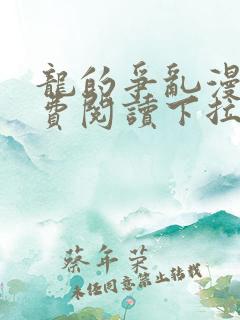 龍的爭亂漫
費閱讀下拉
蔡年榮
未經同意禁止轉載